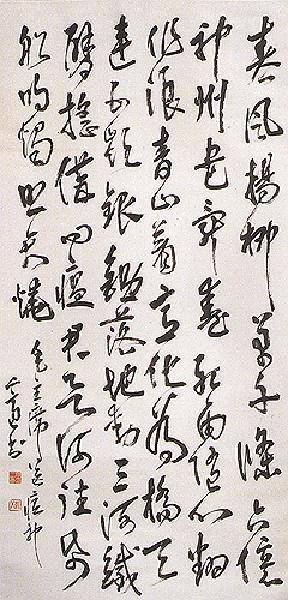 春風楊柳萬千條六億
神州盡舜堯紅雨隨心翻
作浪青山著意化為橋天
連五嶺銀鋤落地動三河鐵
臂搖借問瘟君欲何往紙
船明燭照天燒
毛主席送瘟神